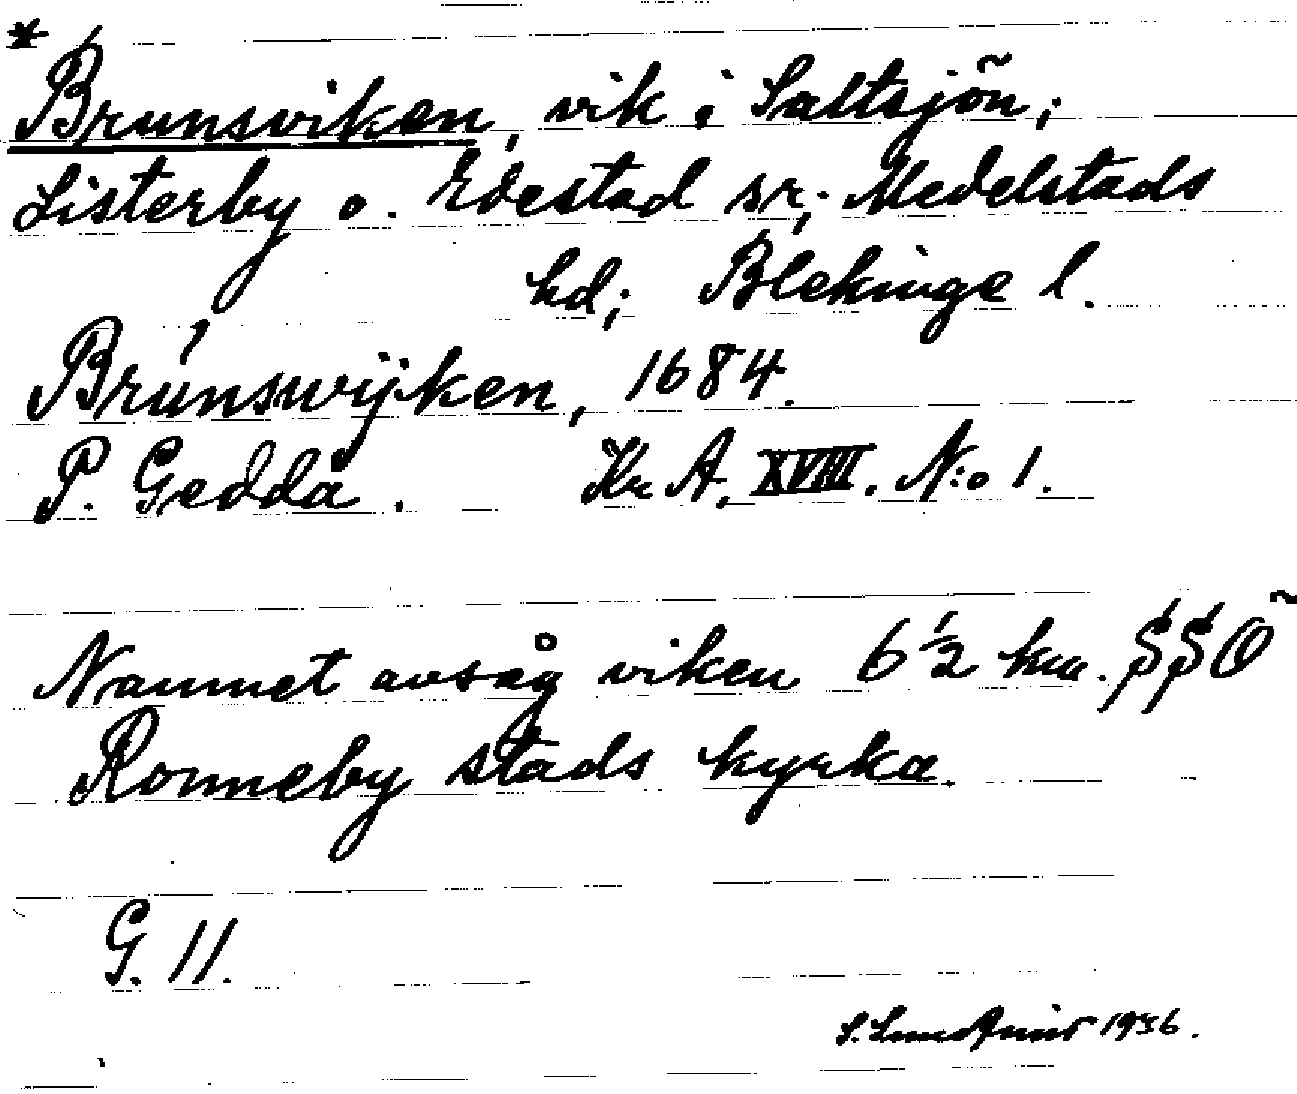 *
Brunsviken, vik i Saltsjön;
Listerby o. Edestad sr; Medelstads
hd; Blekinge l.
Brunswijken, 1684.
P. Geddå. Kr A. XVIII. N:o 1.
Namnet avsåg viken 6 1/2 km. SSÖ
Ronneby stads kyrka.
G. 11.
S. Lundqvist 1936.